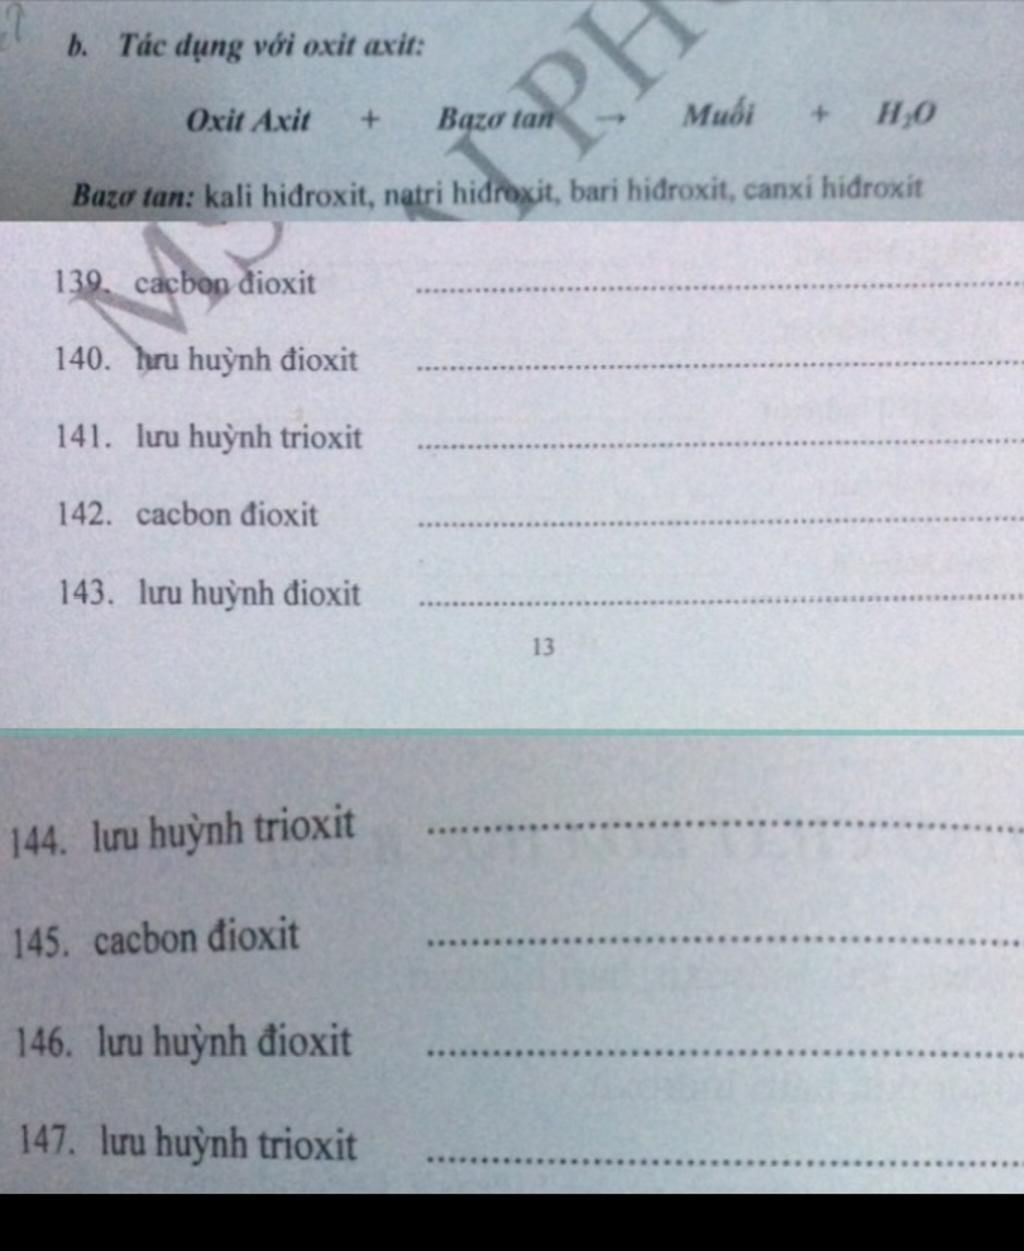 b. Tác dụng với oxit axit:
Oxit Axit + Bazơ tan → Muối + H₂O
Bazơ tan: kali hiđroxit, natri hiđroxit, bari hiđroxit, canxi hiđroxit
139. cacbon đioxit ........................................
140. lưu huỳnh đioxit ........................................
141. lưu huỳnh trioxit ........................................
142. cacbon đioxit ........................................
143. lưu huỳnh đioxit ........................................
13
144. lưu huỳnh trioxit ........................................
145. cacbon đioxit ........................................
146. lưu huỳnh đioxit ........................................
147. lưu huỳnh trioxit ........................................